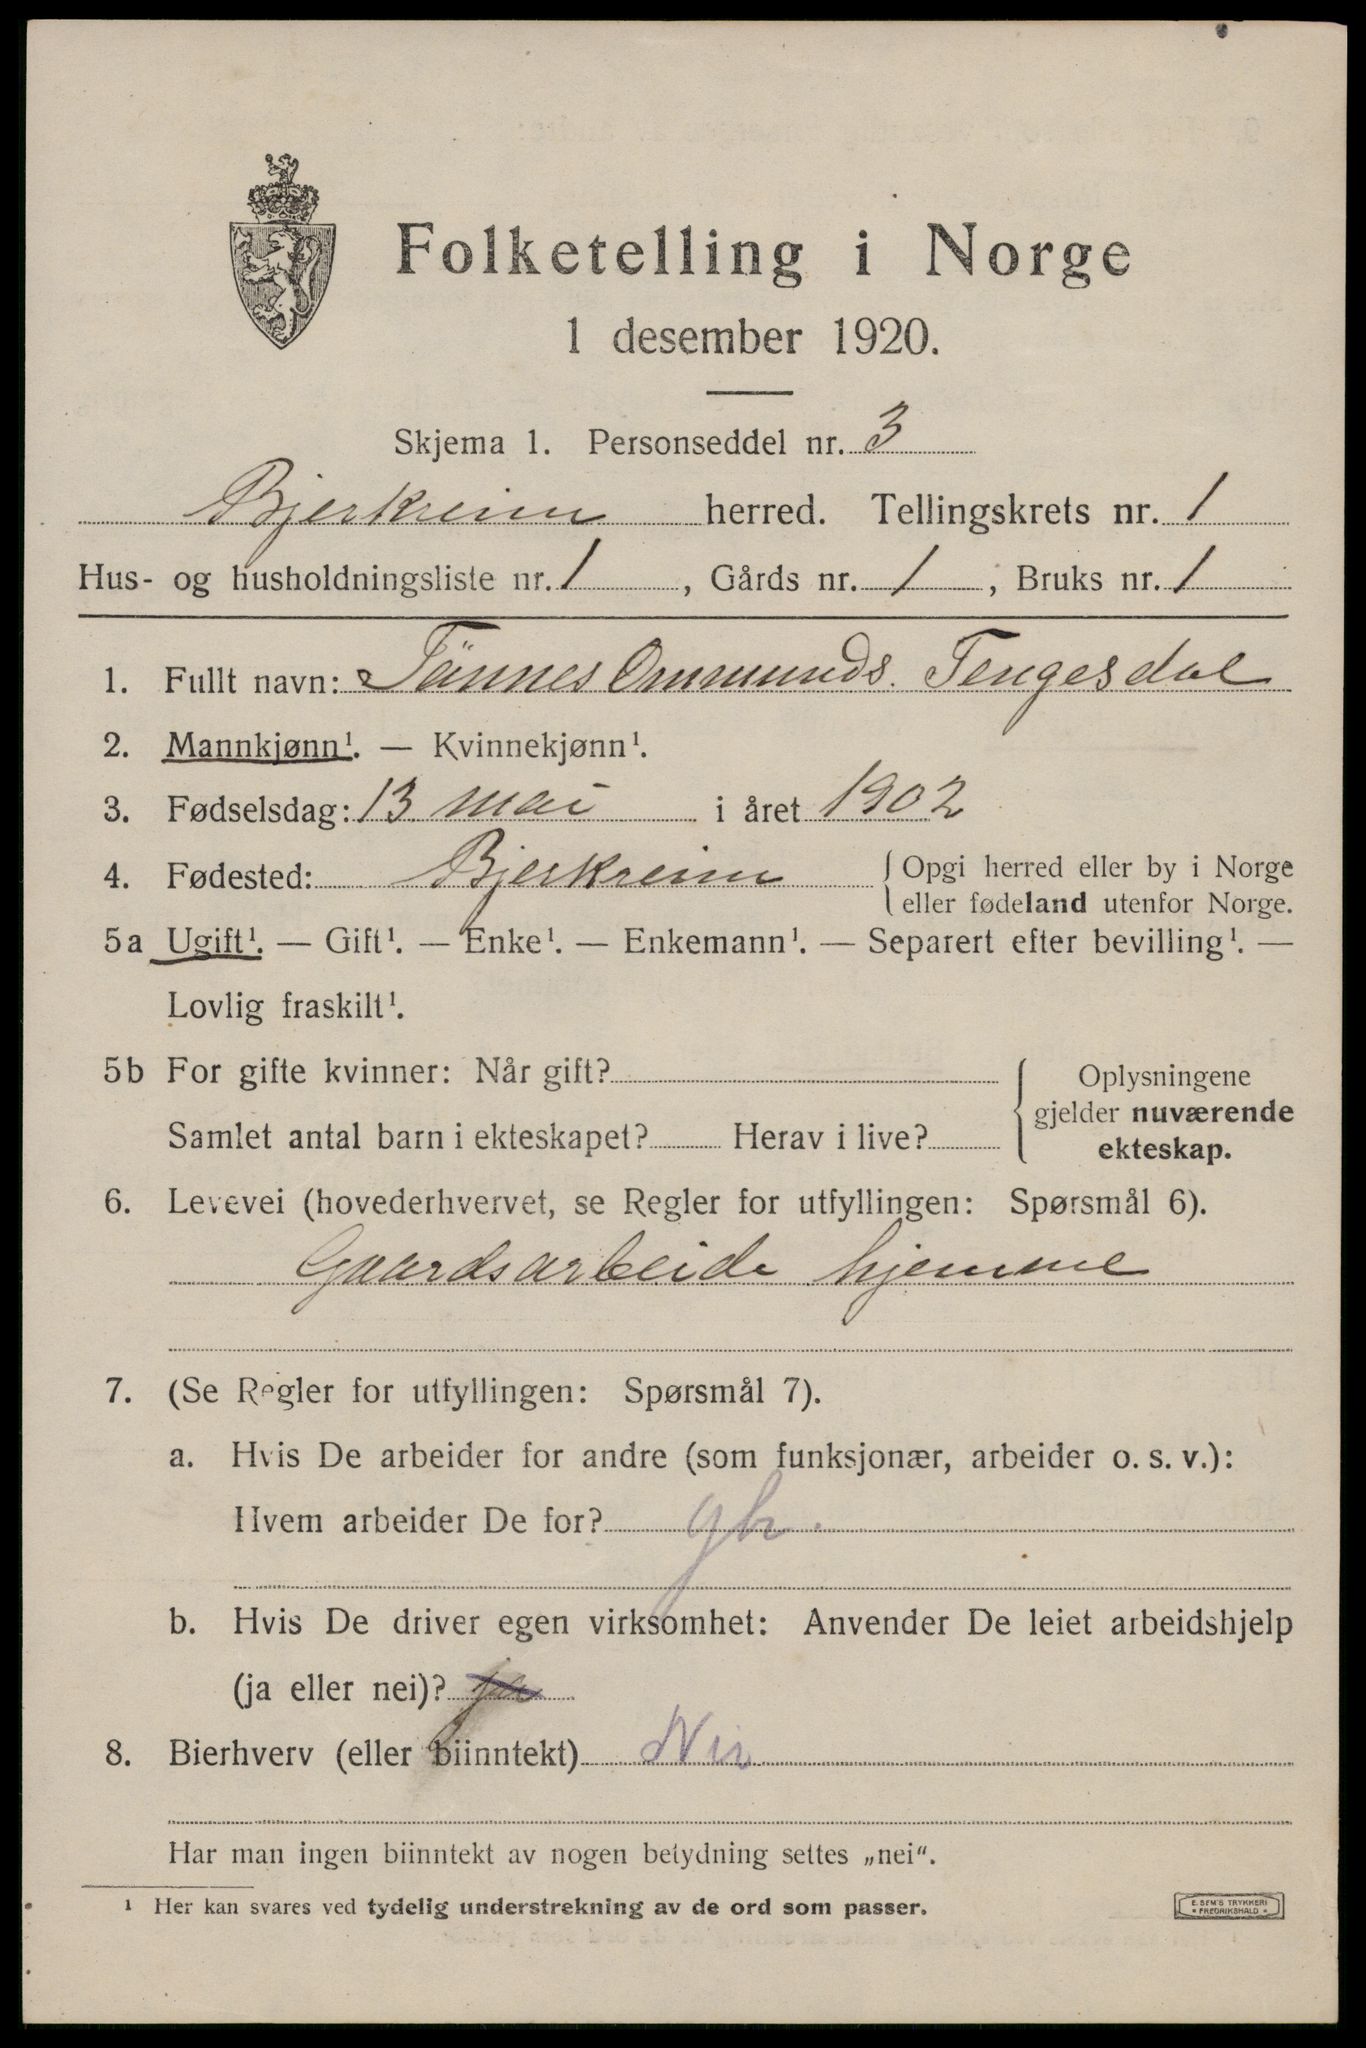 Folketelling i Norge
1 desember 1920.
Skjema 1. Personseddel nr. 3
Bjerkreim herred. Tellingskrets nr. 1
Hus- og husholdningsliste nr. 1, Gårds nr. 1, Bruks nr. 1
1. Fullt navn: Tönnes Ommunds. Tengesdal
2. Mannkjønn¹. — Kvinnekjønn¹.
3. Fødselsdag: 13 mai i året 1902
4. Fødested: Bjerkreim { Opgi herred eller by i Norge
eller fødeland utenfor Norge.
5a Ugift¹. — Gift¹. — Enke¹. — Enkemann¹. — Separert efter bevilling¹. —
Lovlig fraskilt¹.
5b For gifte kvinner: Når gift?
Samlet antal barn i ekteskapet? Herav i live?
Oplysningene
gjelder nuværende
ekteskap.
6. Levevei (hovederhvervet, se Regler for utfyllingen: Spørsmål 6).
Gaardsarbeide hjemme
7. (Se Regler for utfyllingen: Spørsmål 7).
a. Hvis De arbeider for andre (som funksjonær, arbeider o. s. v.):
Hvem arbeider De for?
b. Hvis De driver egen virksomhet: Anvender De leiet arbeidshjelp
(ja eller nei)? ja
8. Bierhverv (eller biinntekt)
Har man ingen biinntekt av nogen betydning settes „nei“.
¹ Her kan svares ved tydelig understrekning av de ord som passer.
E. SEM'S TRYKKERI
* FREDRIKSHALD *